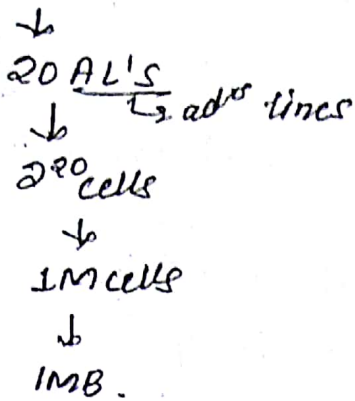 ↓
20 AL's
↳ adrs lines
↓
2²⁰ cells
↓
1M cells
↓
1MB.